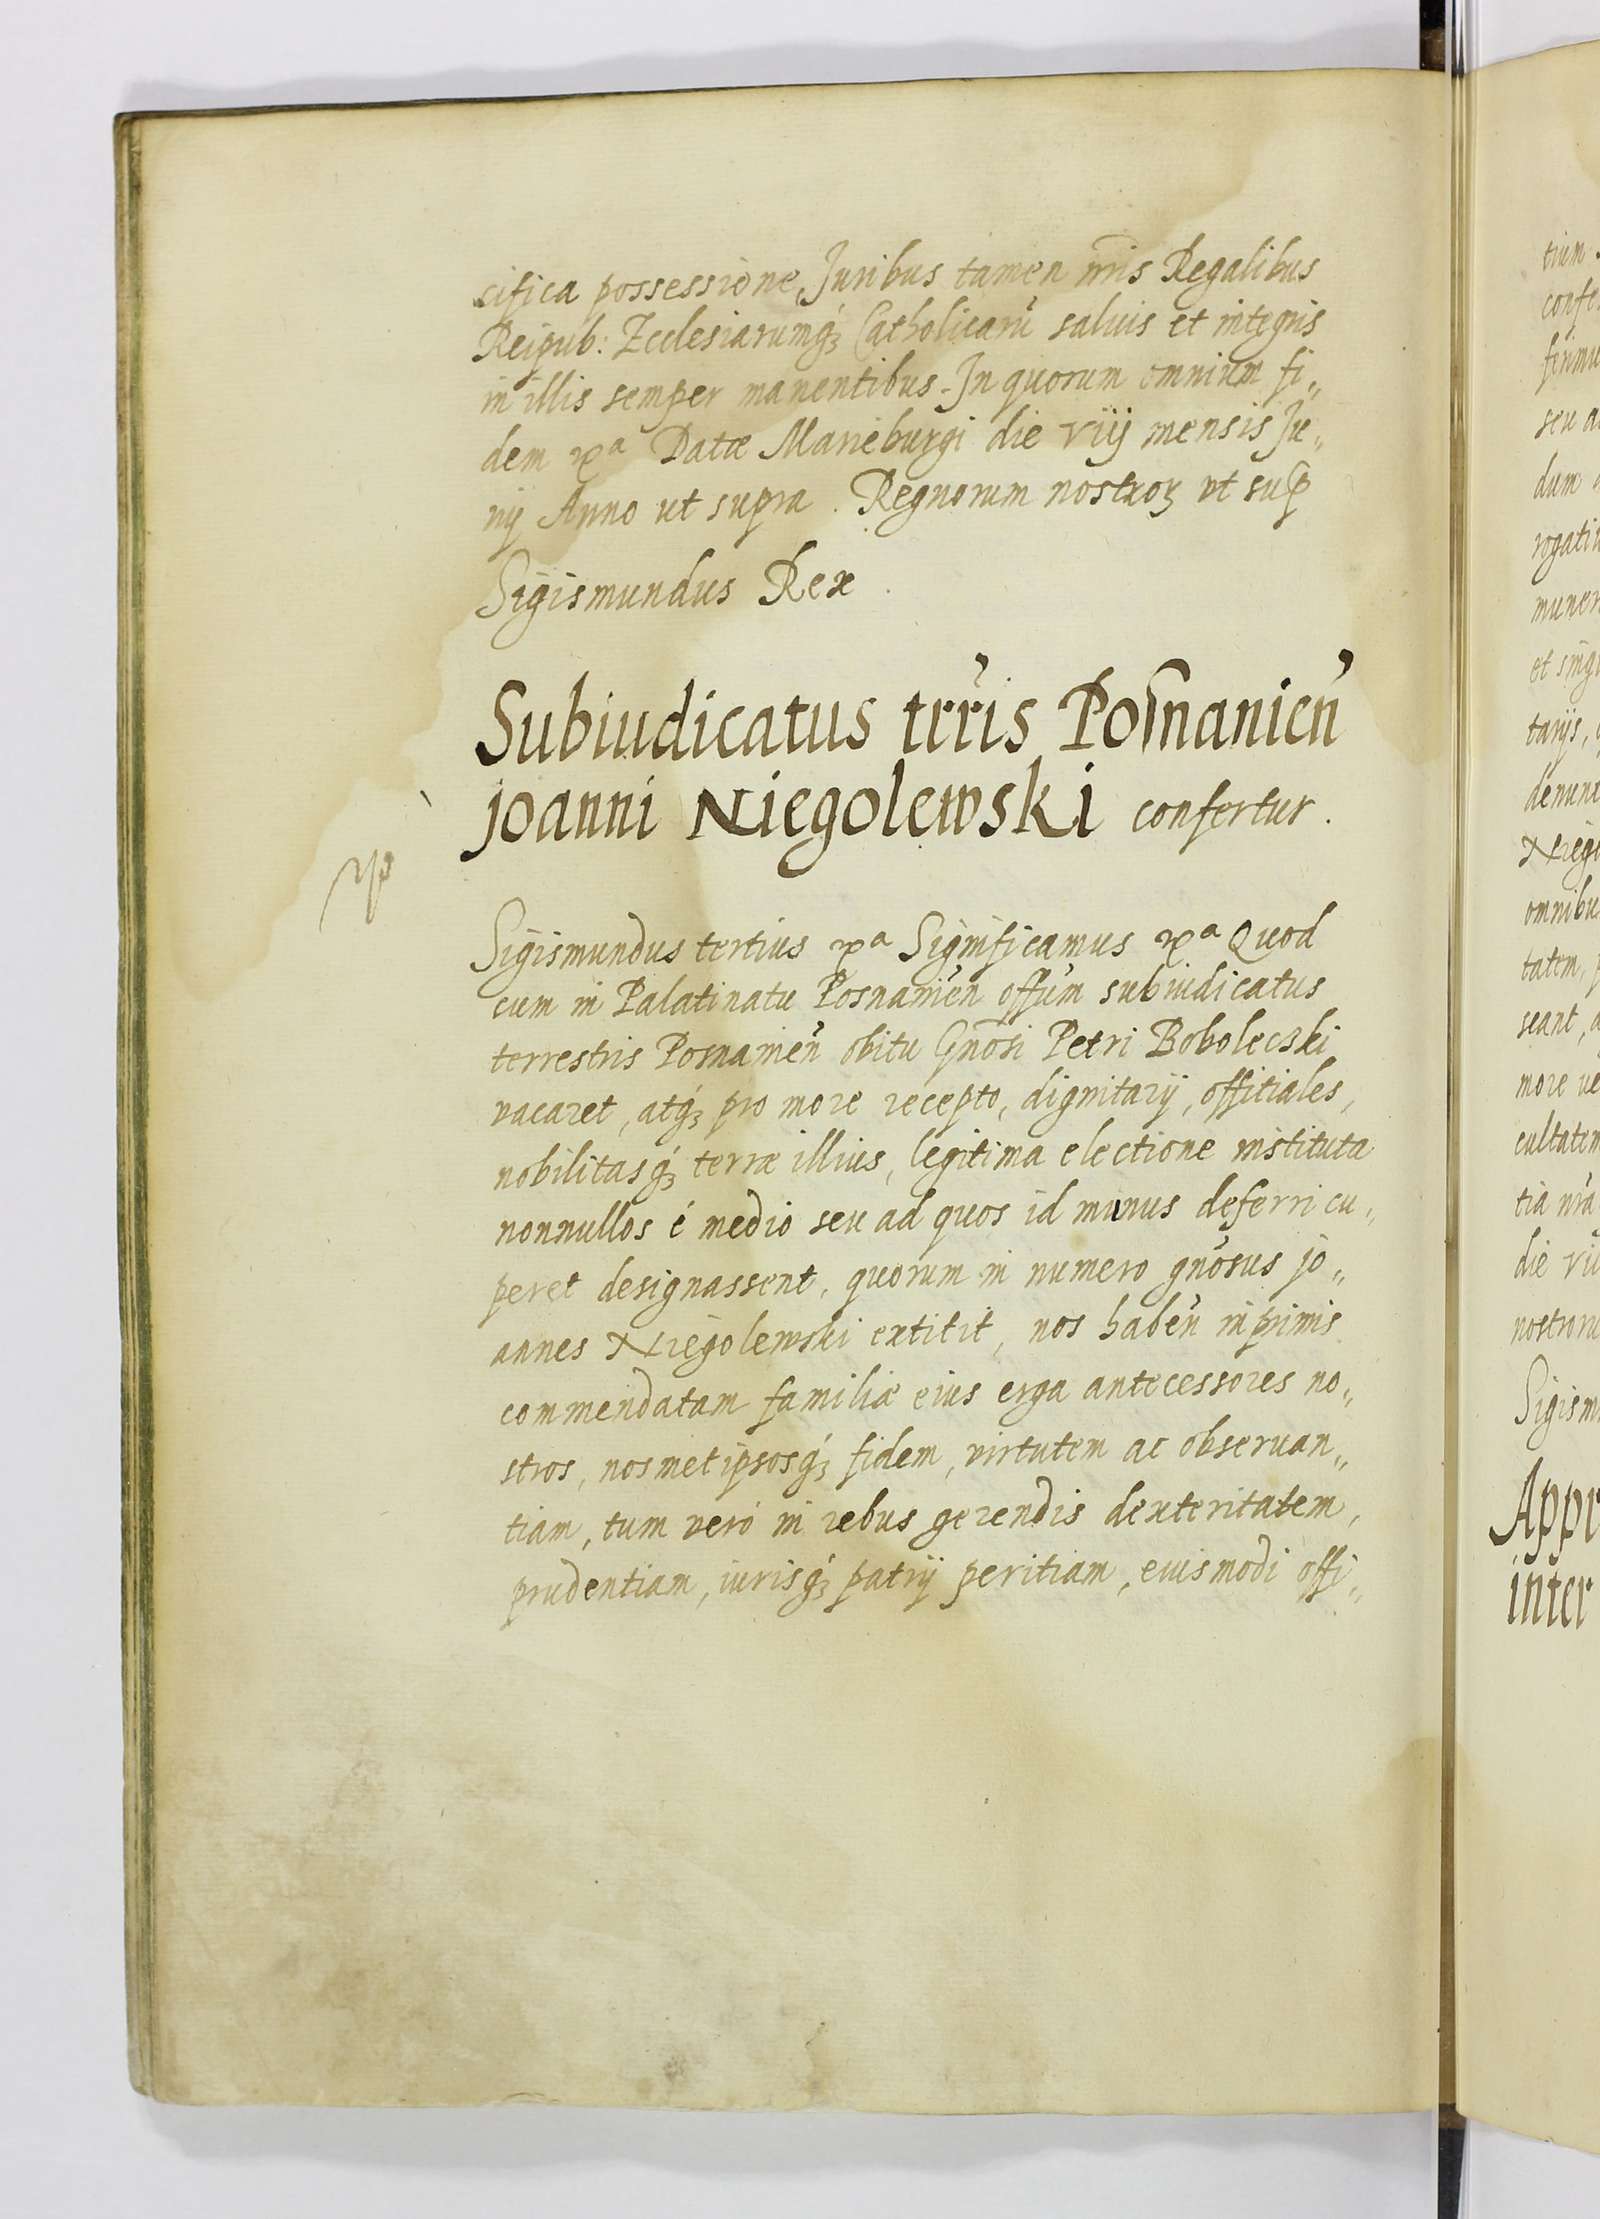 cifica possessione, Juribus tamen nr̃is Regalibus
Reipub: Ecclesiarumq́ꝫ Catholicarũ saluis et integris
in illis semper manentibus. In quorum omnium fi„
dem ꝛc̃a Datæ Marieburgi die viij mensis Ju„
nij Anno ut supra. Regnorum nostroꝝ vt sup̃
Sigismundus Rex.
Subiudicatus trr̃is Posñanień
joanni Niegolewski confertur.
Sigismundus tertius ꝛc̃a Significamus ꝛc̃a Quod
cum in Palatinatu Posnanień off̃um subiudicatus
terrestris Posnanień obitu Gnõsi Petri Boboleczki
vacaret, atq́ꝫ pro more recepto, dignitarij, offitiales,
nobilitasq́ꝫ terræ illius, legitima electione instituta
nonnullos é medio seu ad quos id munus deferri cu„
peret designassent, quorum in numero gnõsus jo„
annes Niegolewski extitit, nos habeń inprimis
commendatam familiæ eius erga antecessores no„
stros, nosmetipsosq́ꝫ fidem, virtutem ac obseruan„
tiam, tum veró in rebus gerendis dexteritatem,
prudentiam, iurisq́ꝫ patrij peritiam, eiusmodi offi„
tium
confe
ferimu
seu a
dum
rogati
muner
et singu
tarijs,
denunt
Niego
omnibu
tatem,
seant, a
more ve
cultatem
tia nr̃a
die vii
nostroru
Sigism
Appr
inter